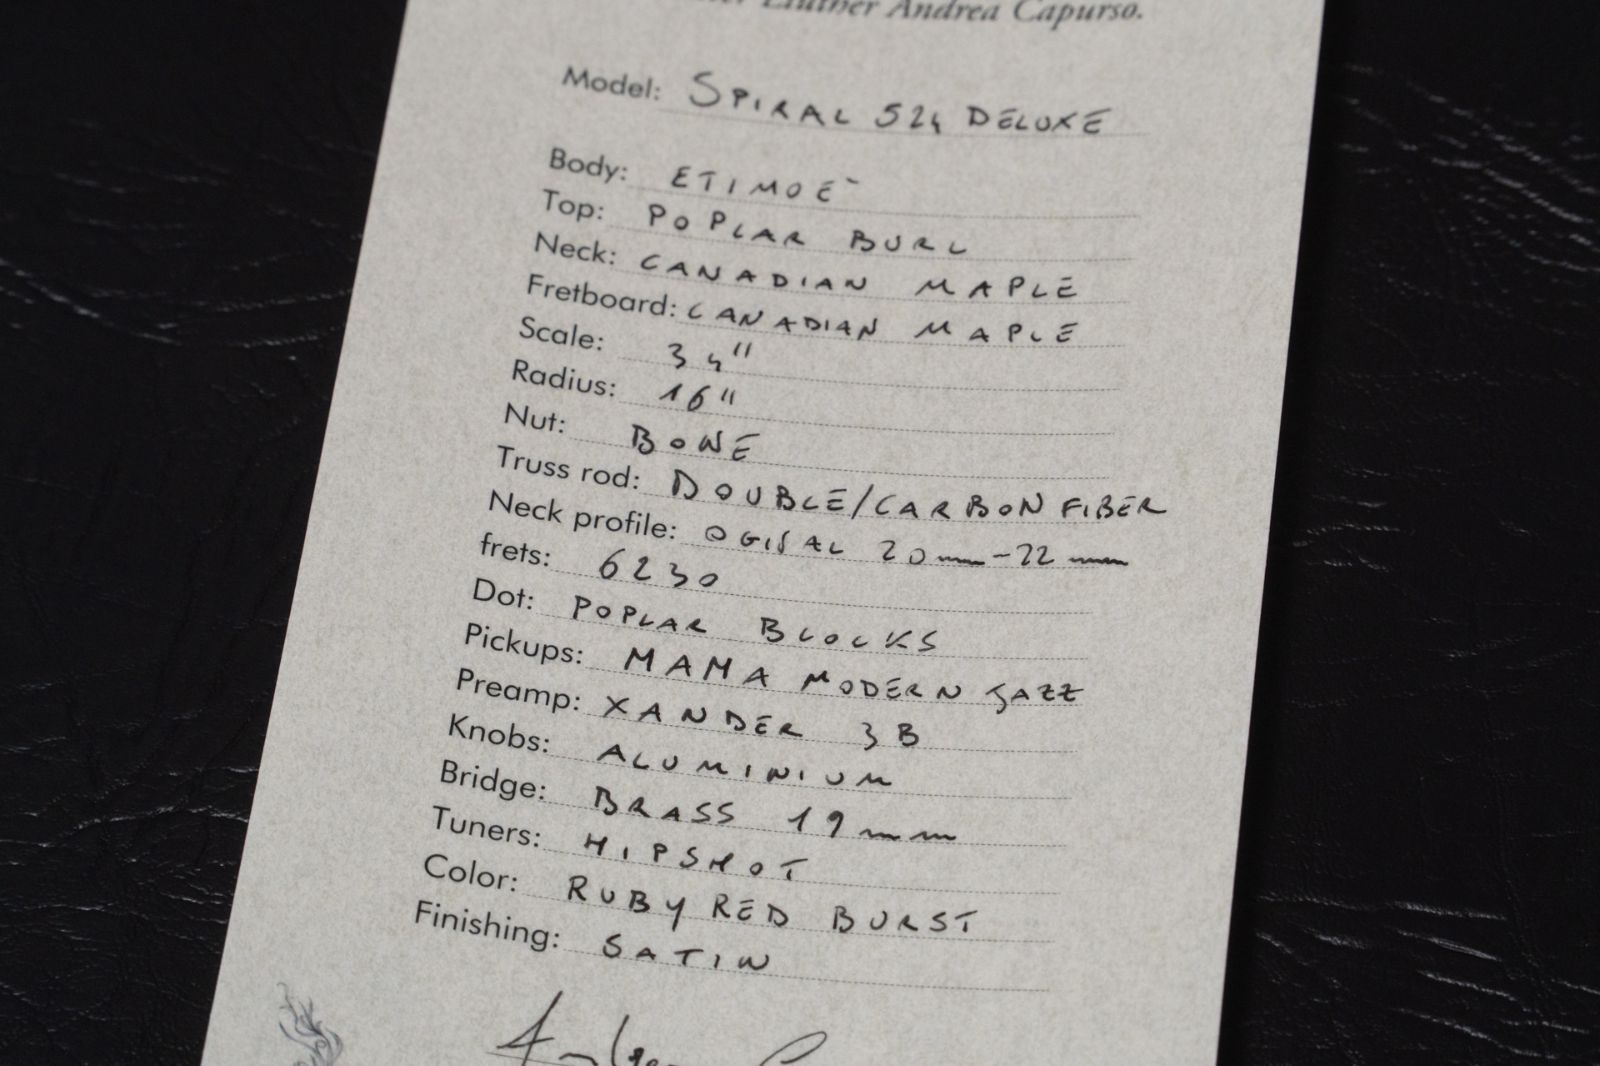 Liuther Andrea Capurso.
Model: SPIRAL 524 DELUXE
Body: ETIMOE`
Top: POPLAR BURL
Neck: CANADIAN MAPLE
Fretboard: CANADIAN MAPLE
Scale: 34"
Radius: 16"
Nut: BONE
Truss rod: DOUBLE/CARBON FIBER
Neck profile: OGISAL 20mm-22mm
frets: 6230
Dot: POPLAR BLOCKS
Pickups: MAMA MODERN JAZZ
Preamp: XANDER 3B
Knobs: ALUMINIUM
Bridge: BRASS 19mm
Tuners: HIPSHOT
Color: RUBY RED BURST
Finishing: SATIN